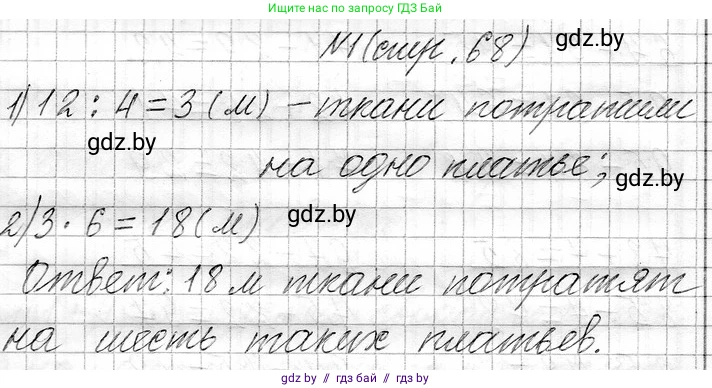 Ищите нас по запросу ГДЗ Бай
№1 (стр. 68) gdz.by
1) 12 : 4 = 3 (м) – ткани потратили
gdz.by
на одно платье; gdz.by
2) 3 · 6 = 18 (м) gdz.by
Ответ: 18 м ткани потратят
на шесть таких платьев.
gdz.by // гдз бай // гдз.бай